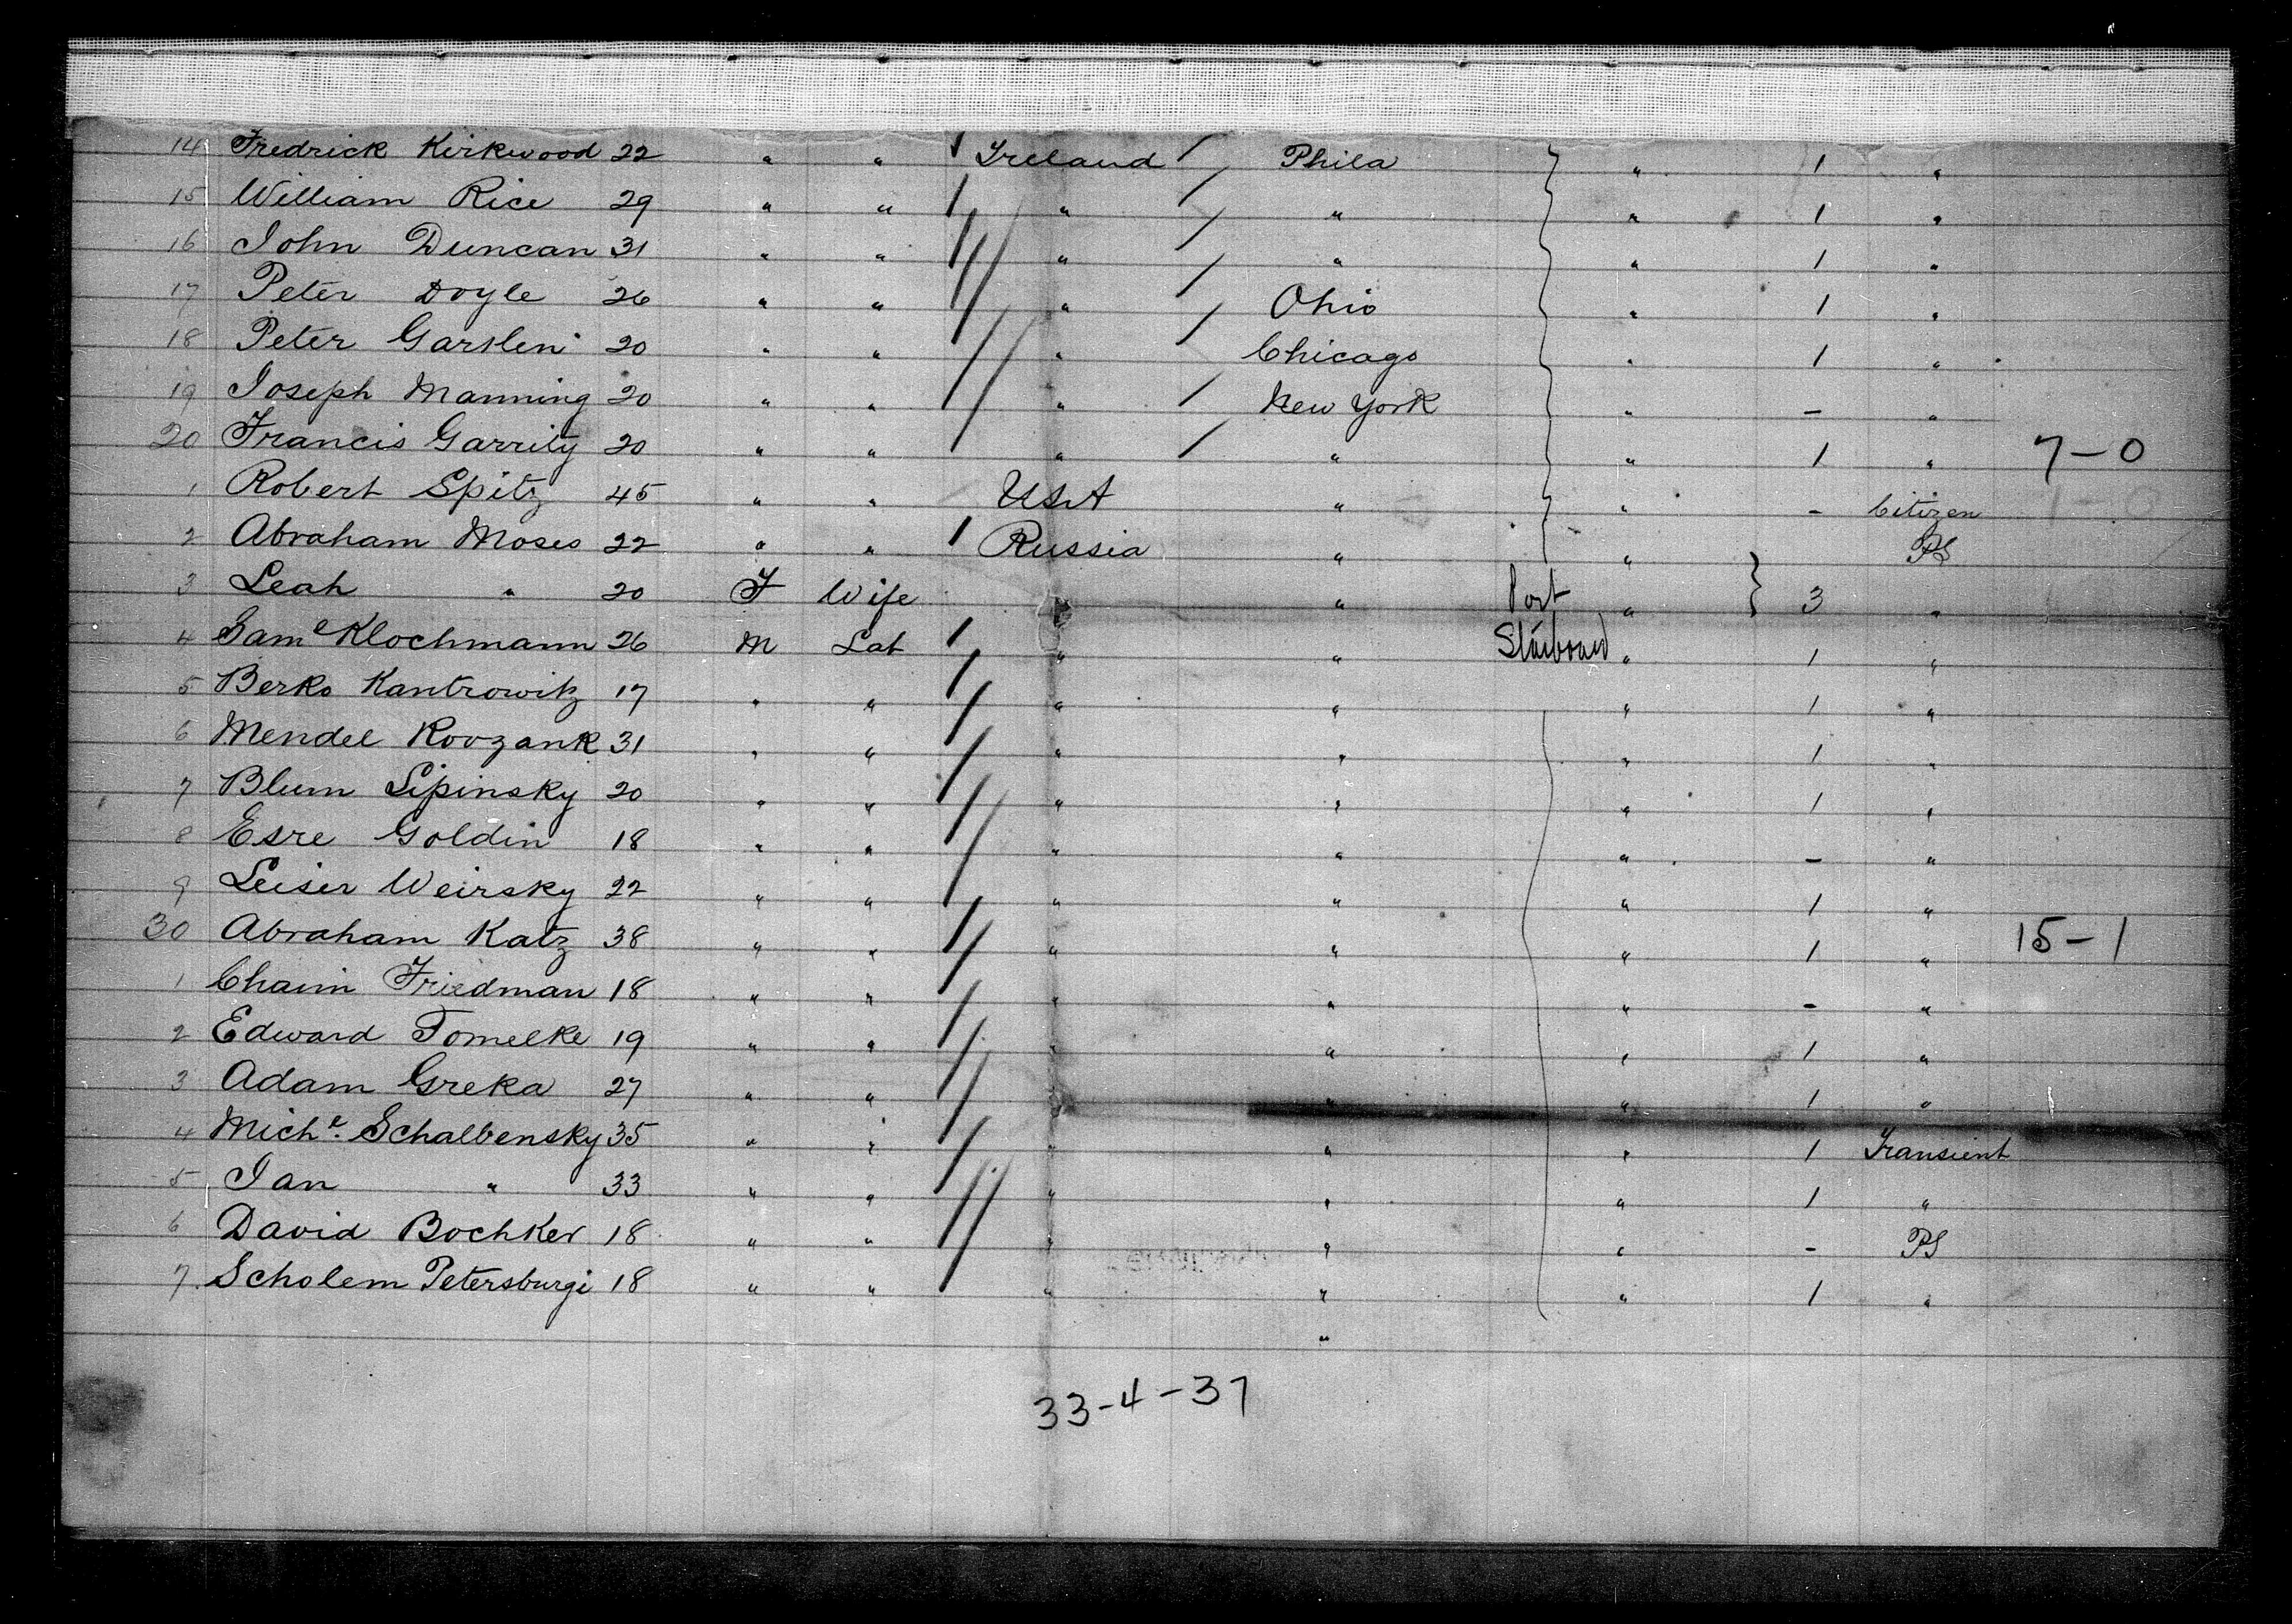 14 Fredrick Kirkwood 22 " " Ireland Phila " 1 "
15 William Rice 29 " " " " " 1 "
16 John Duncan 31 " " " " " 1 "
17 Peter Doyle 26 " " " Ohio " 1 "
18 Peter Garslen 20 " " " Chicago " 1 "
19 Joseph Manning 20 " " " New York " - "
20 Francis Garrity 20 " " " " " 1 " 7-0
1 Robert Spitz 45 " " USA " " - Citizen 1-0
2 Abraham Moses 22 " " Russia " " PS
3 Leah " 20 F Wife " Port " 3 "
4 Saml Klochmann 26 M Lab " " Starboard " 1 "
5 Berko Kantrowitz 17 " " " " " 1 "
6 Mendel Rovzank 31 " " " " " 1 "
7 Blum Lipinsky 20 " " " " " 1 "
8 Esre Goldin 18 " " " " " - "
9 Leiser Weirsky 22 " " " " " 1 "
30 Abraham Katz 38 " " " " " 1 " 15-1
1 Chaim Friedman 18 " " " " " - "
2 Edward Tomelke 19 " " " " " 1 "
3 Adam Greka 27 " " " " " 1 "
4 Michl. Schalbensky 35 " " " " " 1 Transient
5 Jan " 33 " " " " " 1 "
6 David Bochker 18 " " " " " - PS
7 Scholem Petersburgi 18 " " " " " 1 "
"
33-4-37